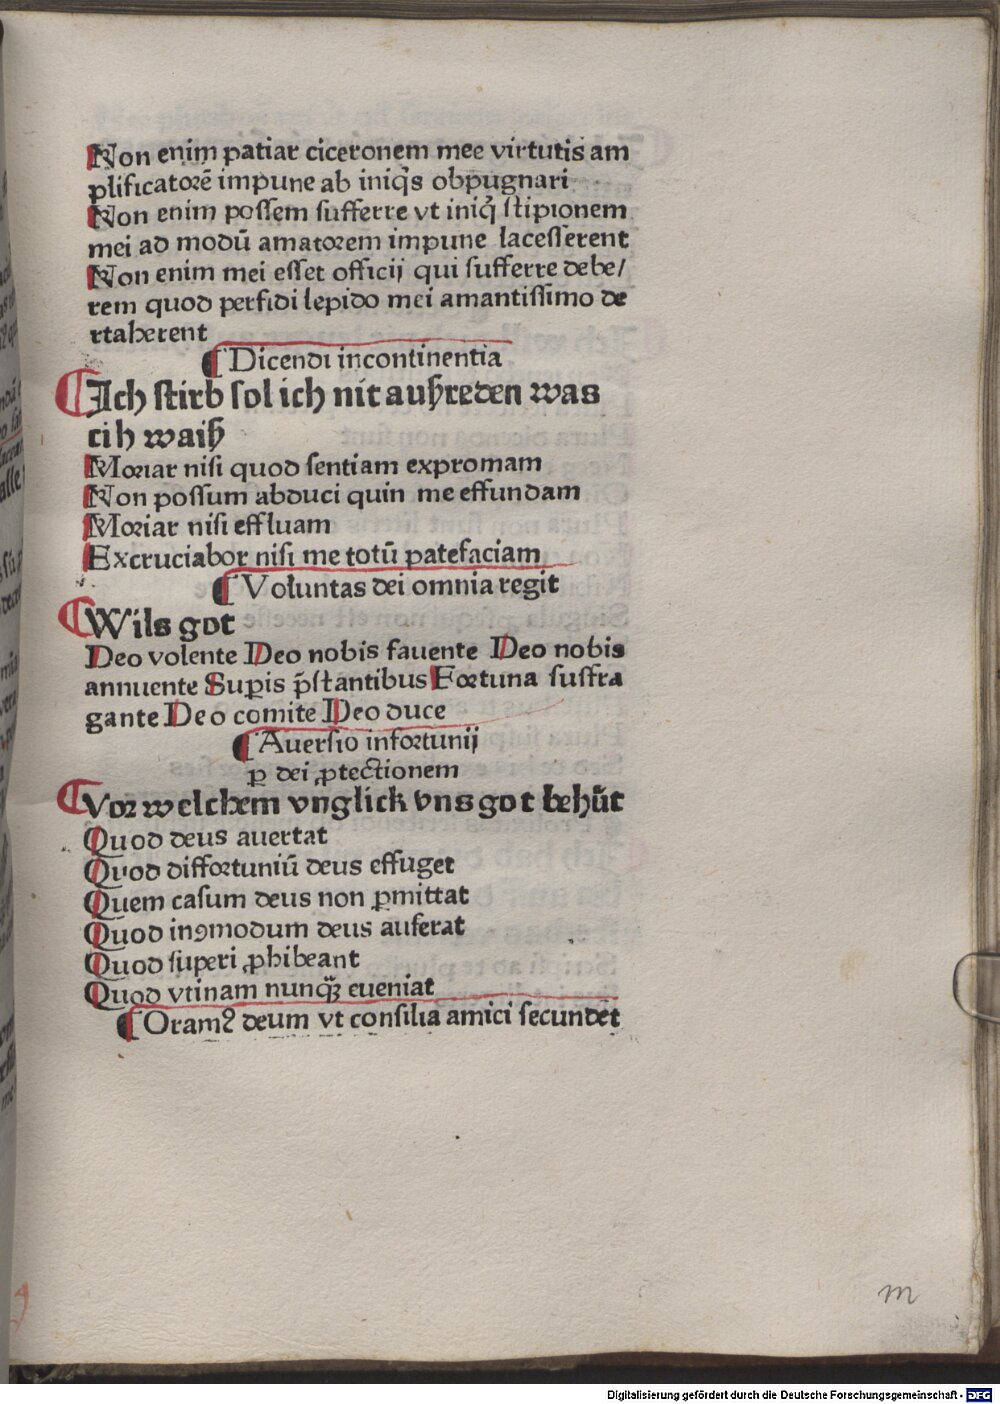 Non enim patiar ciceronem mee virtutis am
plificatorē impune ab iniqͥs obpugnari
Non enim possem sufferre vt iniqͥ stipionem
mei ad modū amatorem impune lacesserent
Non enim mei esset officij qui sufferre debe/
rem quod perfidi lepido mei amantissimo de
rtaherent
¶ Dicendi incontinentia
¶ Ich stirb sol ich nit außreden was
cih waiß
Moriar nisi quod sentiam expromam
Non possum abduci quin me effundam
Moriar nisi effluam
Excruciabor nisi me totū patefaciam
¶ Voluntas dei omnia regit
¶ Wils got
Deo volente Deo nobis favente Deo nobis
annuente Suꝑis p̄stantibus Fortuna suffra
gante Deo comite Deo duce
¶ Aversio infortunij
ꝑ dei ꝓtectionem
¶ Vor welchem vnglick vns got behüt
Quod deus avertat
Quod diffortuniū deus effuget
Quem casum deus non ꝑmittat
Quod inↄmodum deus auferat
Quod superi ꝓhibeant
Quod vtinam nunqᷓꝫ eveniat
¶ Oramꝰ deum vt consilia amici secundēt
m
Digitalisierung gefördert durch die Deutsche Forschungsgemeinschaft - DFG